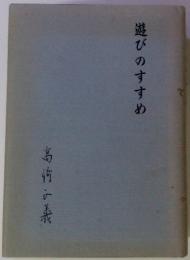 遊びのすすめ
高橋正義